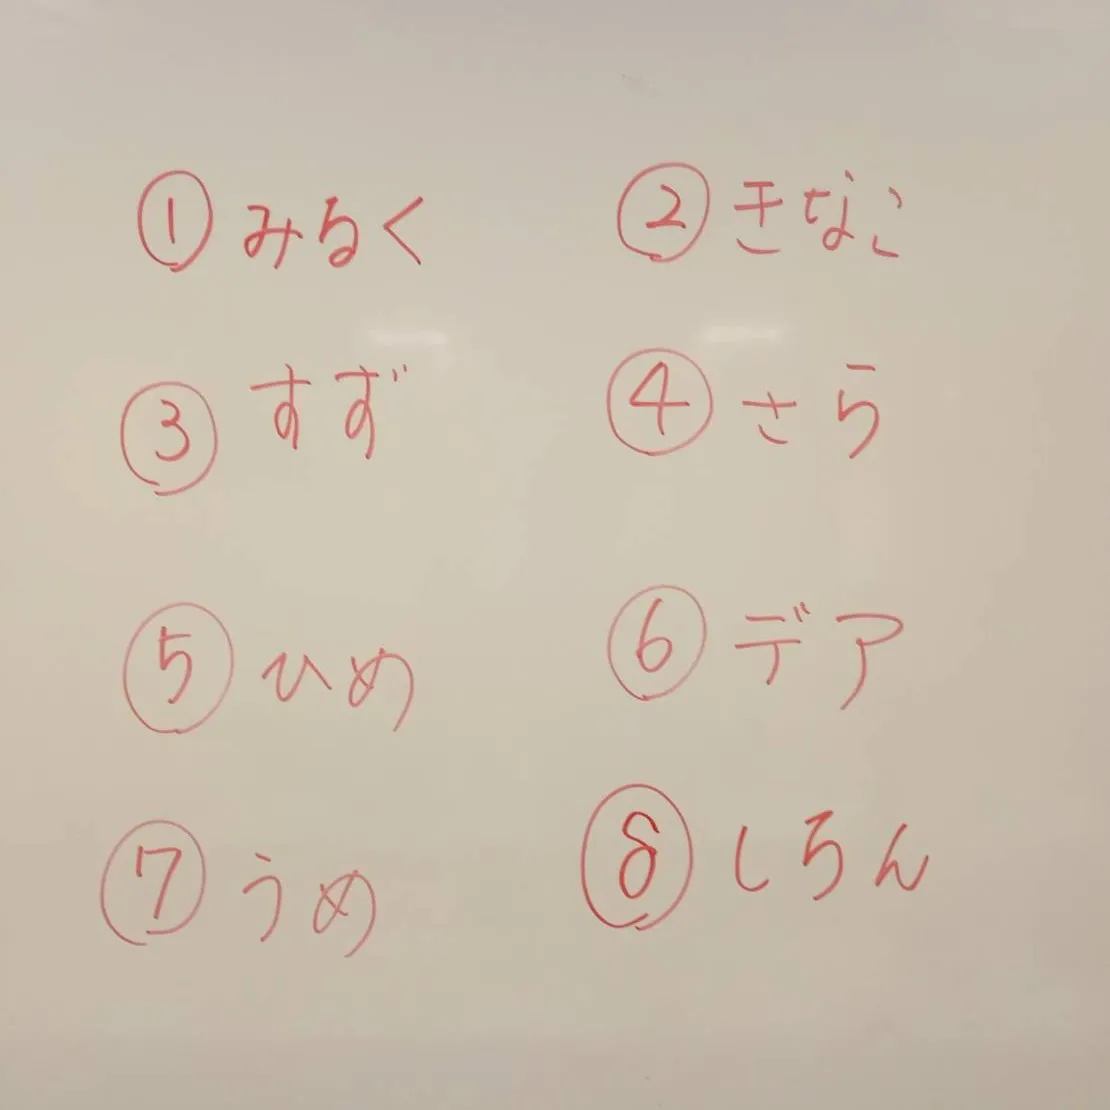 ① みるく
② きなこ
③ すず
④ さら
⑤ ひめ
⑥ デア
⑦ うめ
⑧ しろん